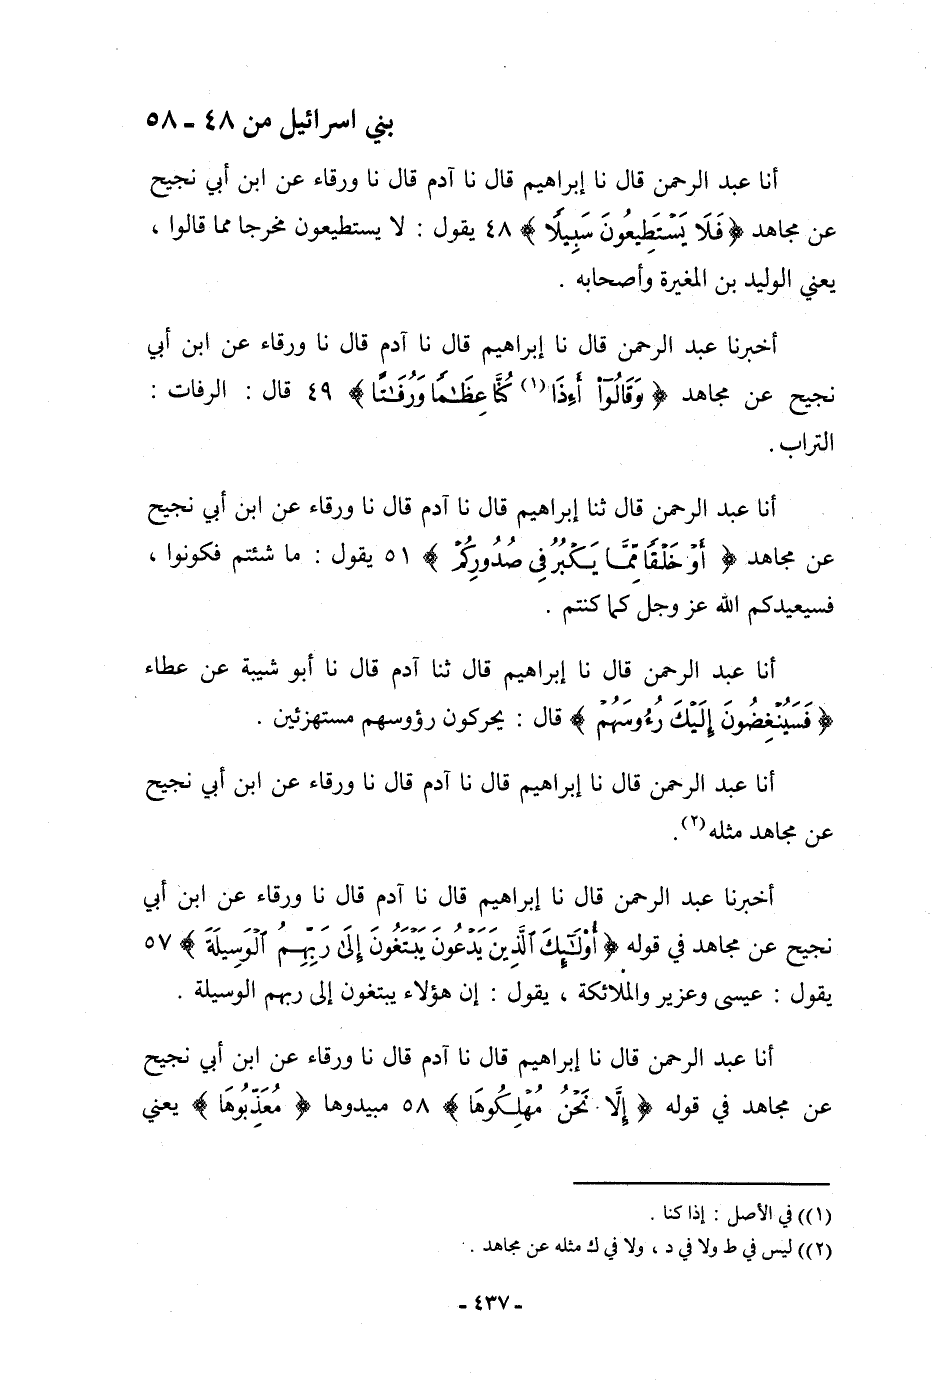 بني اسرائيل من ٤٨ - ٥٨
أنا عبد الرحمن قال نا إبراهيم قال نا آدم قال نا ورقاء عن ابن أبي نجيح
عن مجاهد ﴿ فَلَا يَسْتَطِيعُونَ سَبِيلًا ﴾ ٤٨ يقول : لا يستطيعون مخرجا مما قالوا ،
يعني الوليد بن المغيرة وأصحابه .
أخبرنا عبد الرحمن قال نا إبراهيم قال نا آدم قال نا ورقاء عن ابن أبي
نجيح عن مجاهد ﴿ وَقَالُوٓا۟ أَءِذَا (١) كُنَّا عِظَـٰمًا وَرُفَـٰتًا ﴾ ٤٩ قال : الرفات :
التراب .
أنا عبد الرحمن قال ثنا إبراهيم قال نا آدم قال نا ورقاء عن ابن أبي نجيح
عن مجاهد ﴿ أَوْ خَلْقًا مِّمَّا يَكْبُرُ فِى صُدُورِكُمْ ﴾ ٥١ يقول : ما شئتم فكونوا ،
فسيعيدكم الله عز وجل كما كنتم .
أنا عبد الرحمن قال نا إبراهيم قال ثنا آدم قال نا أبو شيبة عن عطاء
﴿ فَسَيُنْغِضُونَ إِلَيْكَ رُءُوسَهُمْ ﴾ قال : يحركون رؤوسهم مستهزئين .
أنا عبد الرحمن قال نا إبراهيم قال نا آدم قال نا ورقاء عن ابن أبي نجيح
عن مجاهد مثله (٢) .
أخبرنا عبد الرحمن قال نا إبراهيم قال نا آدم قال نا ورقاء عن ابن أبي
نجيح عن مجاهد في قوله ﴿ أُو۟لَـٰٓئِكَ ٱلَّذِينَ يَدْعُونَ يَبْتَغُونَ إِلَىٰ رَبِّهِمُ ٱلْوَسِيلَةَ ﴾ ٥٧
يقول : عيسى وعزير والملائكة ، يقول : إن هؤلاء يبتغون إلى ربهم الوسيلة .
أنا عبد الرحمن قال نا إبراهيم قال نا آدم قال نا ورقاء عن ابن أبي نجيح
عن مجاهد في قوله ﴿ إِلَّا نَحْنُ مُهْلِكُوهَا ﴾ ٥٨ مبيدوها ﴿ مُعَذِّبُوهَا ﴾ يعني
(١)) في الأصل : إذا كنا .
(٢)) ليس في ط ولا في د ، ولا في ك مثله عن مجاهد .
- ٤٣٧ -